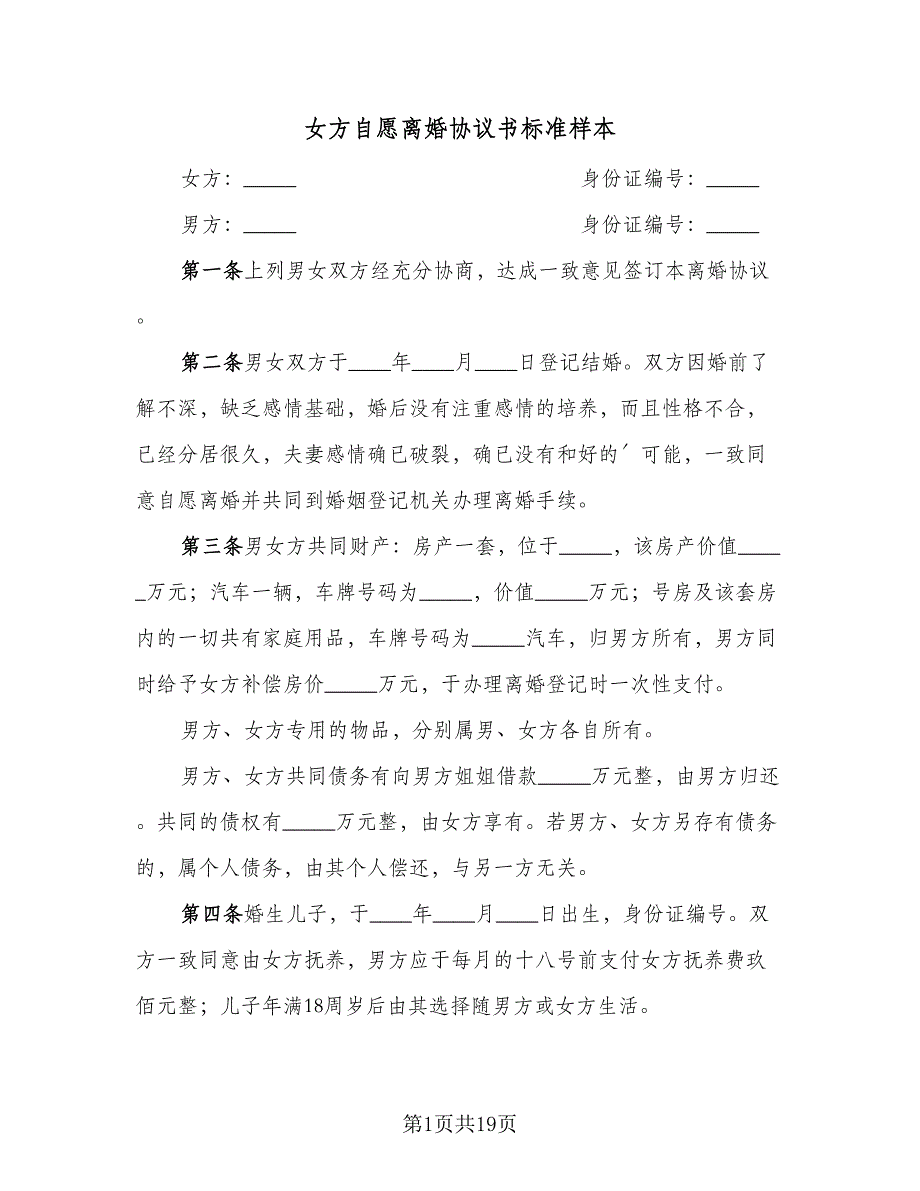 女方自愿离婚协议书标准样本
女方：_____ 身份证编号：_____
男方：_____ 身份证编号：_____
第一条上列男女双方经充分协商，达成一致意见签订本离婚协议
。
第二条男女双方于____年____月____日登记结婚。双方因婚前了
解不深，缺乏感情基础，婚后没有注重感情的培养，而且性格不合，
已经分居很久，夫妻感情确已破裂，确已没有和好的ˊ可能，一致同
意自愿离婚并共同到婚姻登记机关办理离婚手续。
第三条男女方共同财产：房产一套，位于_____，该房产价值____
_万元；汽车一辆，车牌号码为_____，价值_____万元；号房及该套房
内的一切共有家庭用品，车牌号码为_____汽车，归男方所有，男方同
时给予女方补偿房价_____万元，于办理离婚登记时一次性支付。
男方、女方专用的物品，分别属男、女方各自所有。
男方、女方共同债务有向男方姐姐借款_____万元整，由男方归还
。共同的债权有_____万元整，由女方享有。若男方、女方另存有债务
的，属个人债务，由其个人偿还，与另一方无关。
第四条婚生儿子，于____年____月____日出生，身份证编号。双
方一致同意由女方抚养，男方应于每月的十八号前支付女方抚养费玖
佰元整；儿子年满18周岁后由其选择随男方或女方生活。
第1页共19页